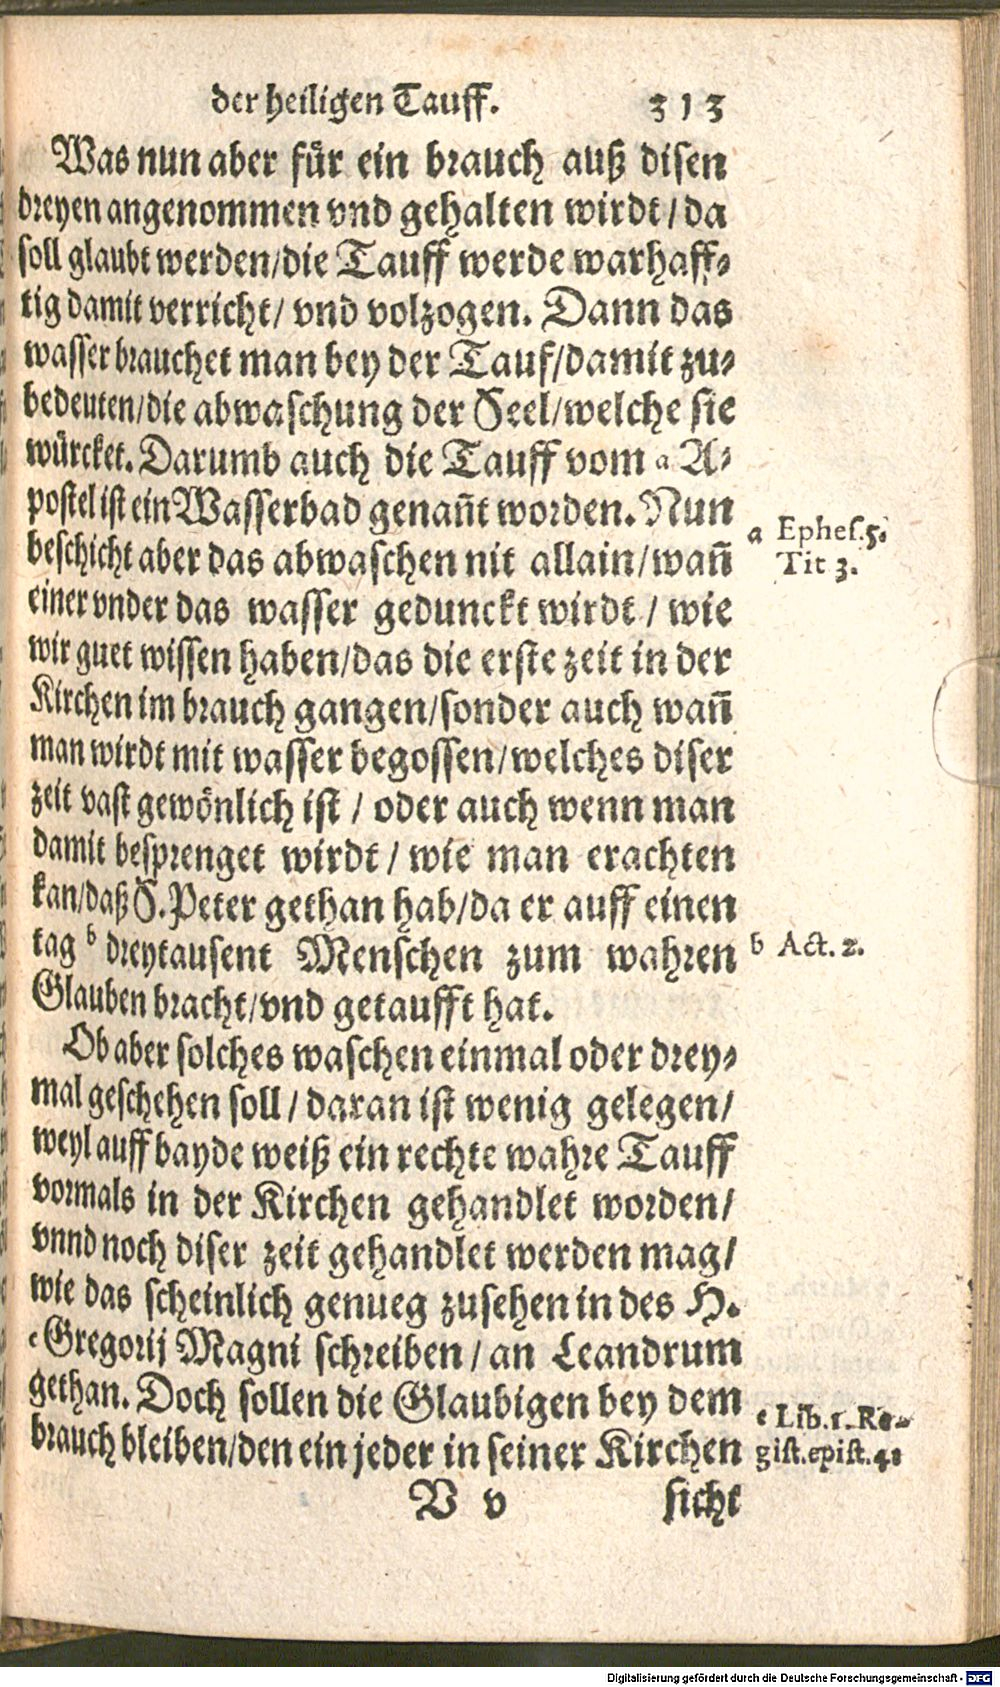 der heiligen Tauff. 313
Was nun aber für ein brauch auß disen
dreyen angenommen vnd gehalten wirdt / da
soll glaubt werden/die Tauff werde warhaff-
tig damit verricht/ vnd volzogen. Dann das
wasser brauchet man bey der Tauf/damit zu-
bedeuten/die abwaschung der Seel/welche sie
würcket. Darumb auch die Tauff vom a A-
postel ist ein Wasserbad genañt worden. Nun
a Ephes.5.
beschicht aber das abwaschen nit allain/wañ
Tit 3.
einer vnder das wasser gedunckt wirdt / wie
wir guet wissen haben/das die erste zeit in der
Kirchen im brauch gangen/sonder auch wañ
man wirdt mit wasser begossen/welches diser
zeit vast gewönlich ist / oder auch wenn man
damit besprenget wirdt / wie man erachten
kan/daß S. Peter gethan hab/da er auff einen
tag b dreytausent Menschen zum wahren
b Act. 2.
Glauben bracht/vnd getaufft hat.
Ob aber solches waschen einmal oder drey-
mal geschehen soll / daran ist wenig gelegen/
weyl auff bayde weiß ein rechte wahre Tauff
vormals in der Kirchen gehandlet worden/
vnnd noch diser zeit gehandlet werden mag/
wie das scheinlich genueg zusehen in des H.
c Gregorij Magni schreiben / an Leandrum
gethan. Doch sollen die Glaubigen bey dem
c Lib.1.Re-
brauch bleiben/den ein jeder in seiner Kirchen
gist.epist.41
V v sicht
Digitalisierung gefördert durch die Deutsche Forschungsgemeinschaft - DFG